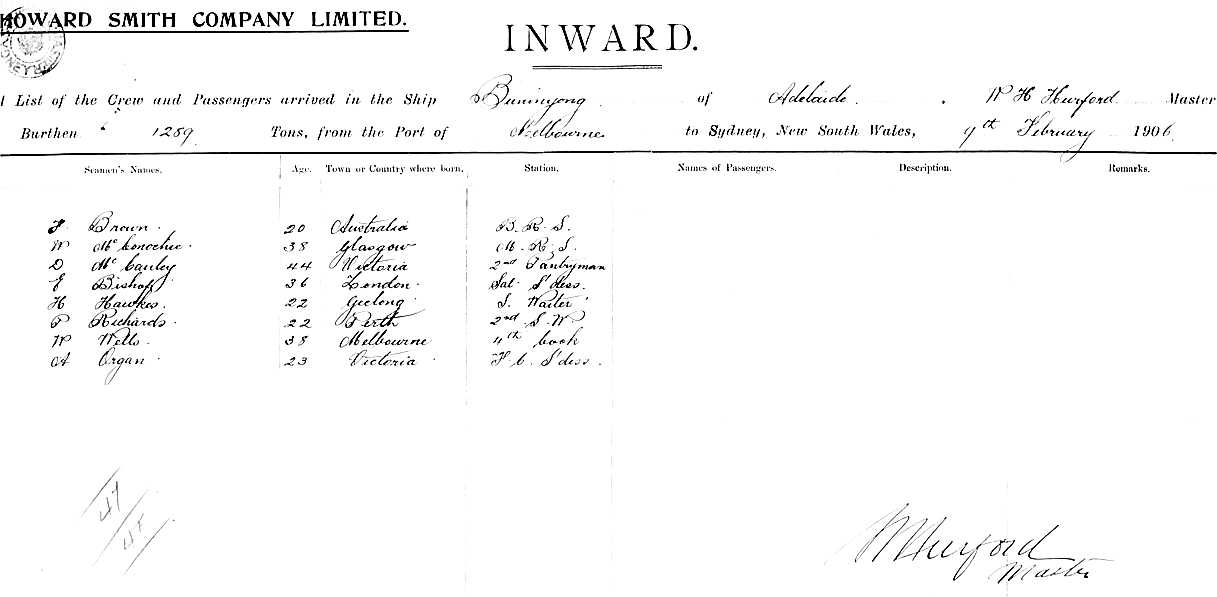 HOWARD SMITH COMPANY LIMITED.
INWARD.
A List of the Crew and Passengers arrived in the Ship Buninyong of Adelaide, W H Hurford Master
Burthen 1289 Tons, from the Port of Melbourne to Sydney, New South Wales, 9th February 1906
Seamen's Names. Age. Town or Country where born. Station. Names of Passengers. Description. Remarks.
F Brown 20 Australia B. R. S.
W McConochie 38 Glasgow M. R. S.
D McCauley 44 Victoria 2nd Pantryman
E Bishop 36 London Sal. S'dess.
H Hawkes 22 Geelong S. Waiter
P Richards 22 Perth 2nd S. W.
W Wells 38 Melbourne 4th Cook
A Organ 23 Victoria F. C. S'dess.
WHurford
Master